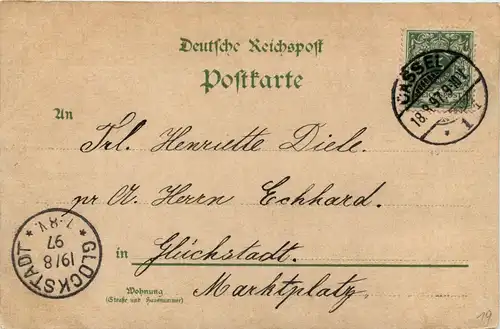 Deutsche Reichspost
Postkarte
CASSEL
18.8.97.
1
An
Frl. Henriette Diele.
pr A. Herrn Eckhard.
in Glückstadt.
Marktplatz
Wohnung
(Straße und Hausnummer)
* GLÜCKSTADT *
19/8
97
7-8V.
19